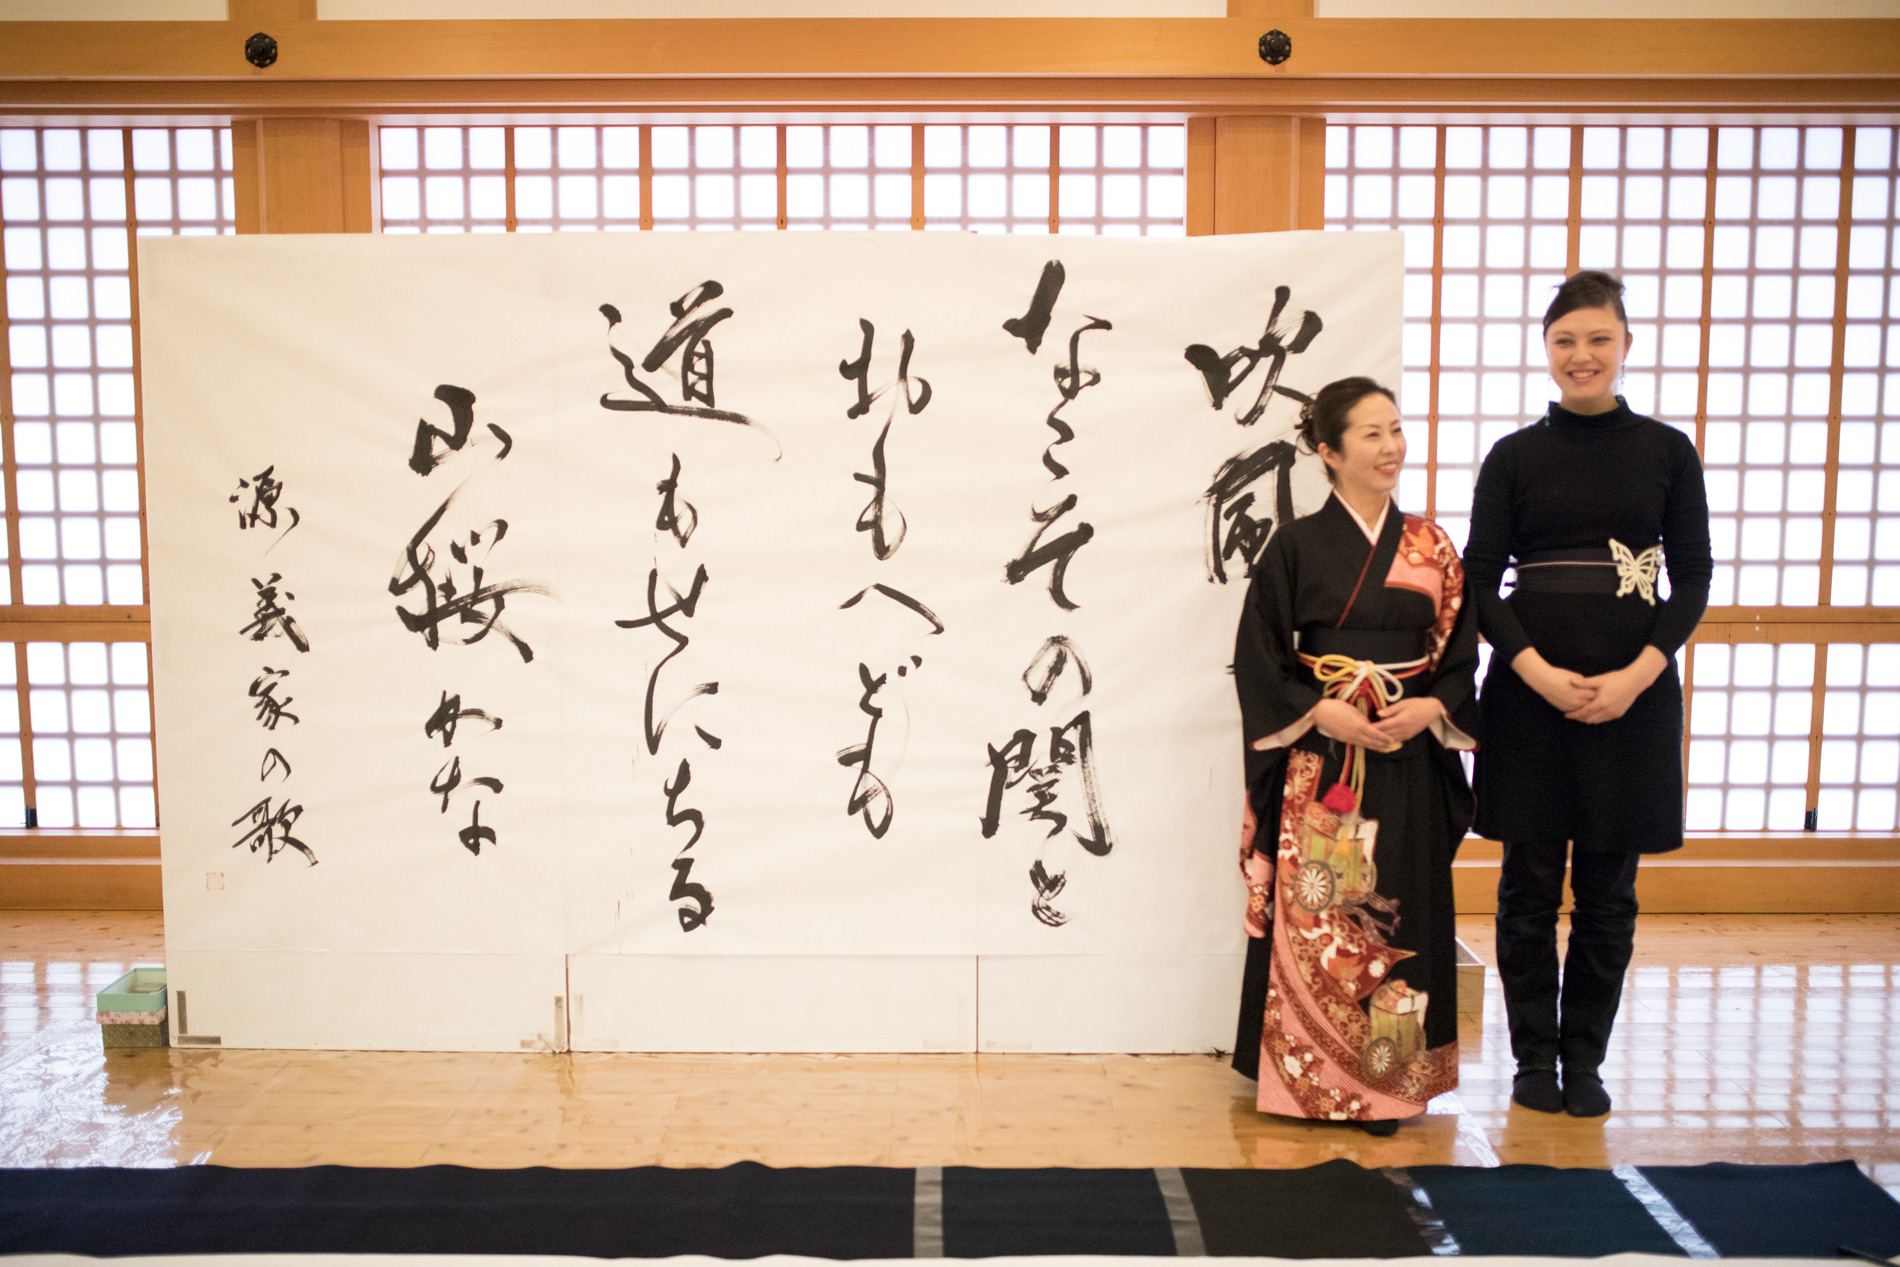 吹風
なこその関と
おもへども
道もせにちる
山桜かな
源義家の歌